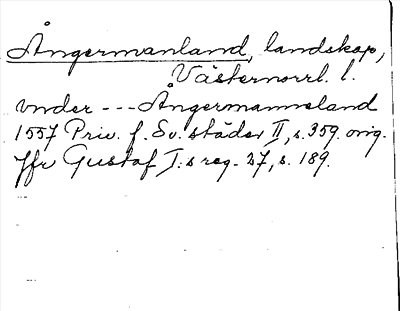 Ångermanland, landskap,
Västernorrl. l.
vnder --- Ångermanneland
1557 Priv. f. Sv. städer II, s. 359. orig.
Jfr Gustaf I:s reg. 27, s. 189.